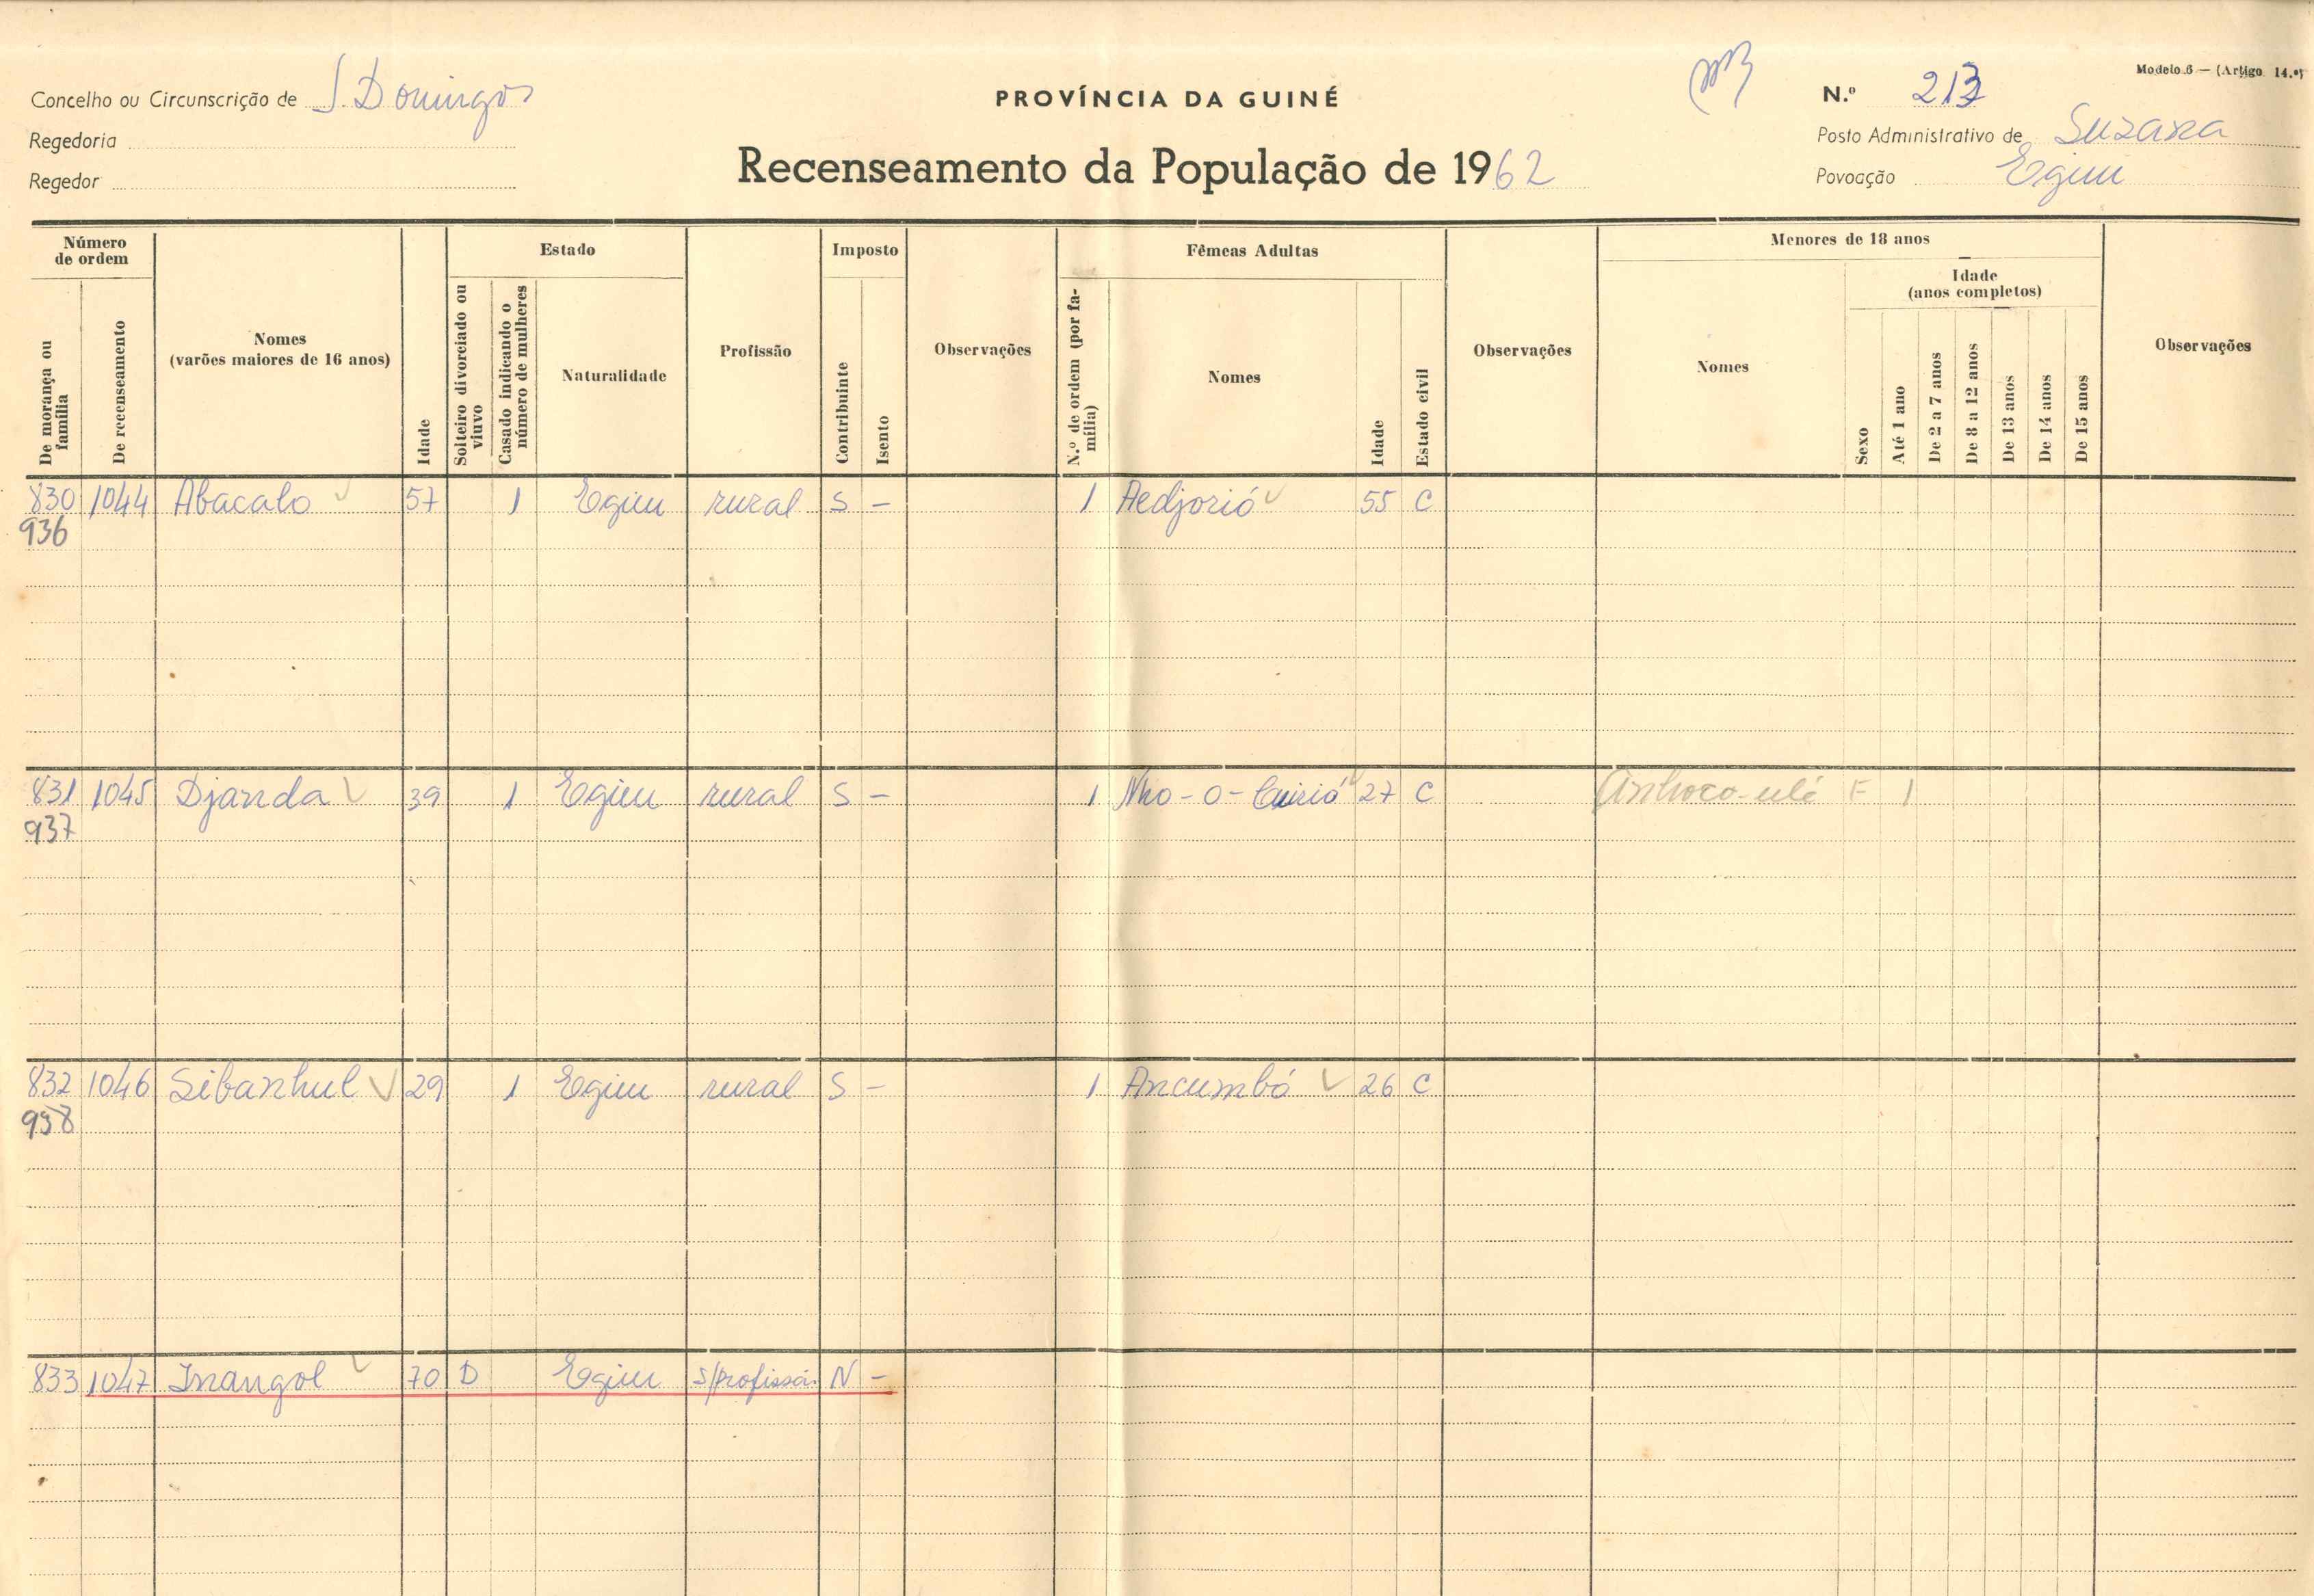 Modelo 6 — (Artigo 14.º)
Concelho ou Circunscrição de S. Domingos
PROVÍNCIA DA GUINÉ
N.º 213
Regedoria
Posto Administrativo de Suzana
Regedor
Recenseamento da População de 1962
Povoação Egiim
Número de ordem
De morança ou família
De recenseamento
Nomes
(varões maiores de 16 anos)
Idade
Estado
Solteiro divorciado ou viuvo
Casado indicando o número de mulheres
Naturalidade
Profissão
Imposto
Contribuinte
Isento
Observações
Fêmeas Adultas
N.º de ordem (por família)
Nomes
Idade
Estado civil
Observações
Menores de 18 anos
Nomes
Sexo
Idade
(anos completos)
Até 1 ano
De 2 a 7 anos
De 8 a 12 anos
De 13 anos
De 14 anos
De 15 anos
Observações
830 1044 Abacalo 57 1 Egiim rural S – 1 Aedjorió 55 C
936
831 1045 Djanda 39 1 Egiim rural S – 1 Nho-o- 27 C F 1
937
832 1046 Sibanhul 29 1 Egiim rural S – 1 Ancumbó 26 C
938
833 1047 Inangol 70 D Egiim s/profissão N –